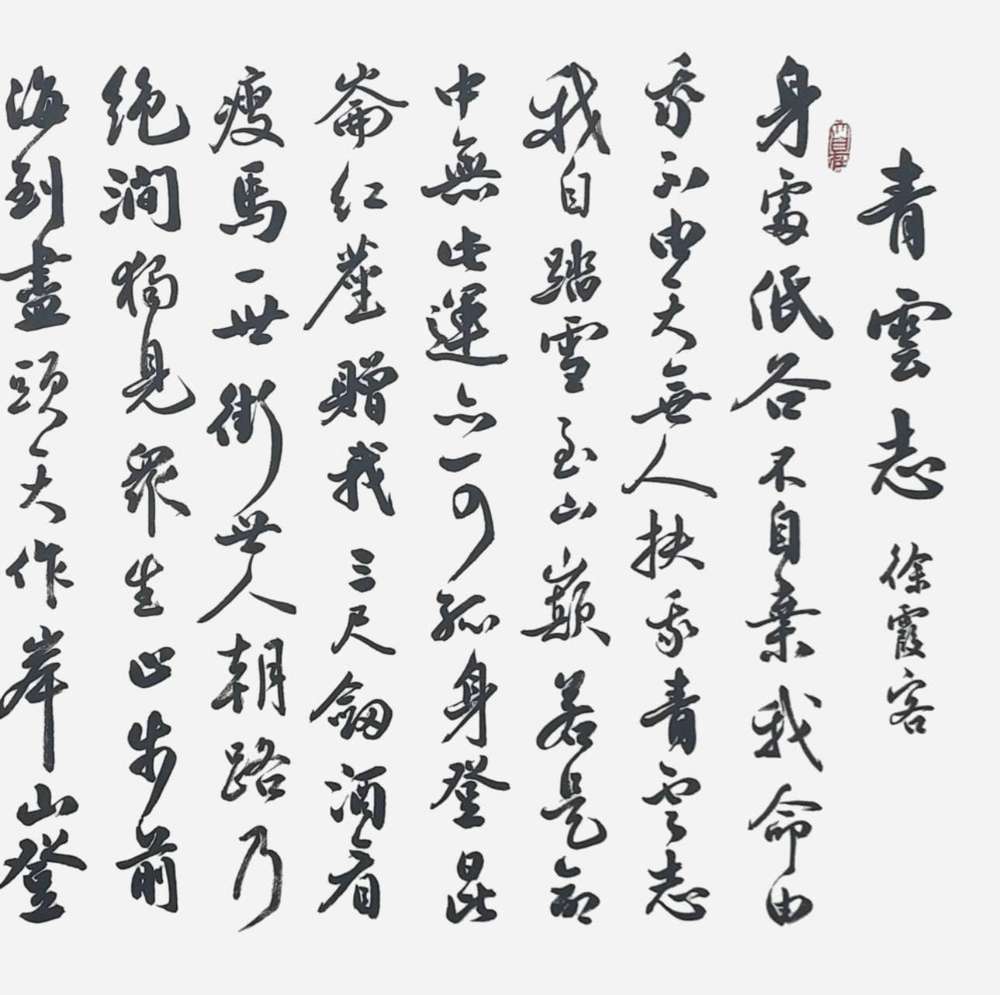 青雲志 徐霞客
身處低谷不自棄我命由
我不由天無人扶我青雲志
我自踏雪至山巔若是命
中無此運亦可孤身登昆
崙紅塵贈我三尺劍酒肴
瘦馬一世街世人朝路乃
絕澗獨見眾生止步前
海到盡頭天作岸山登